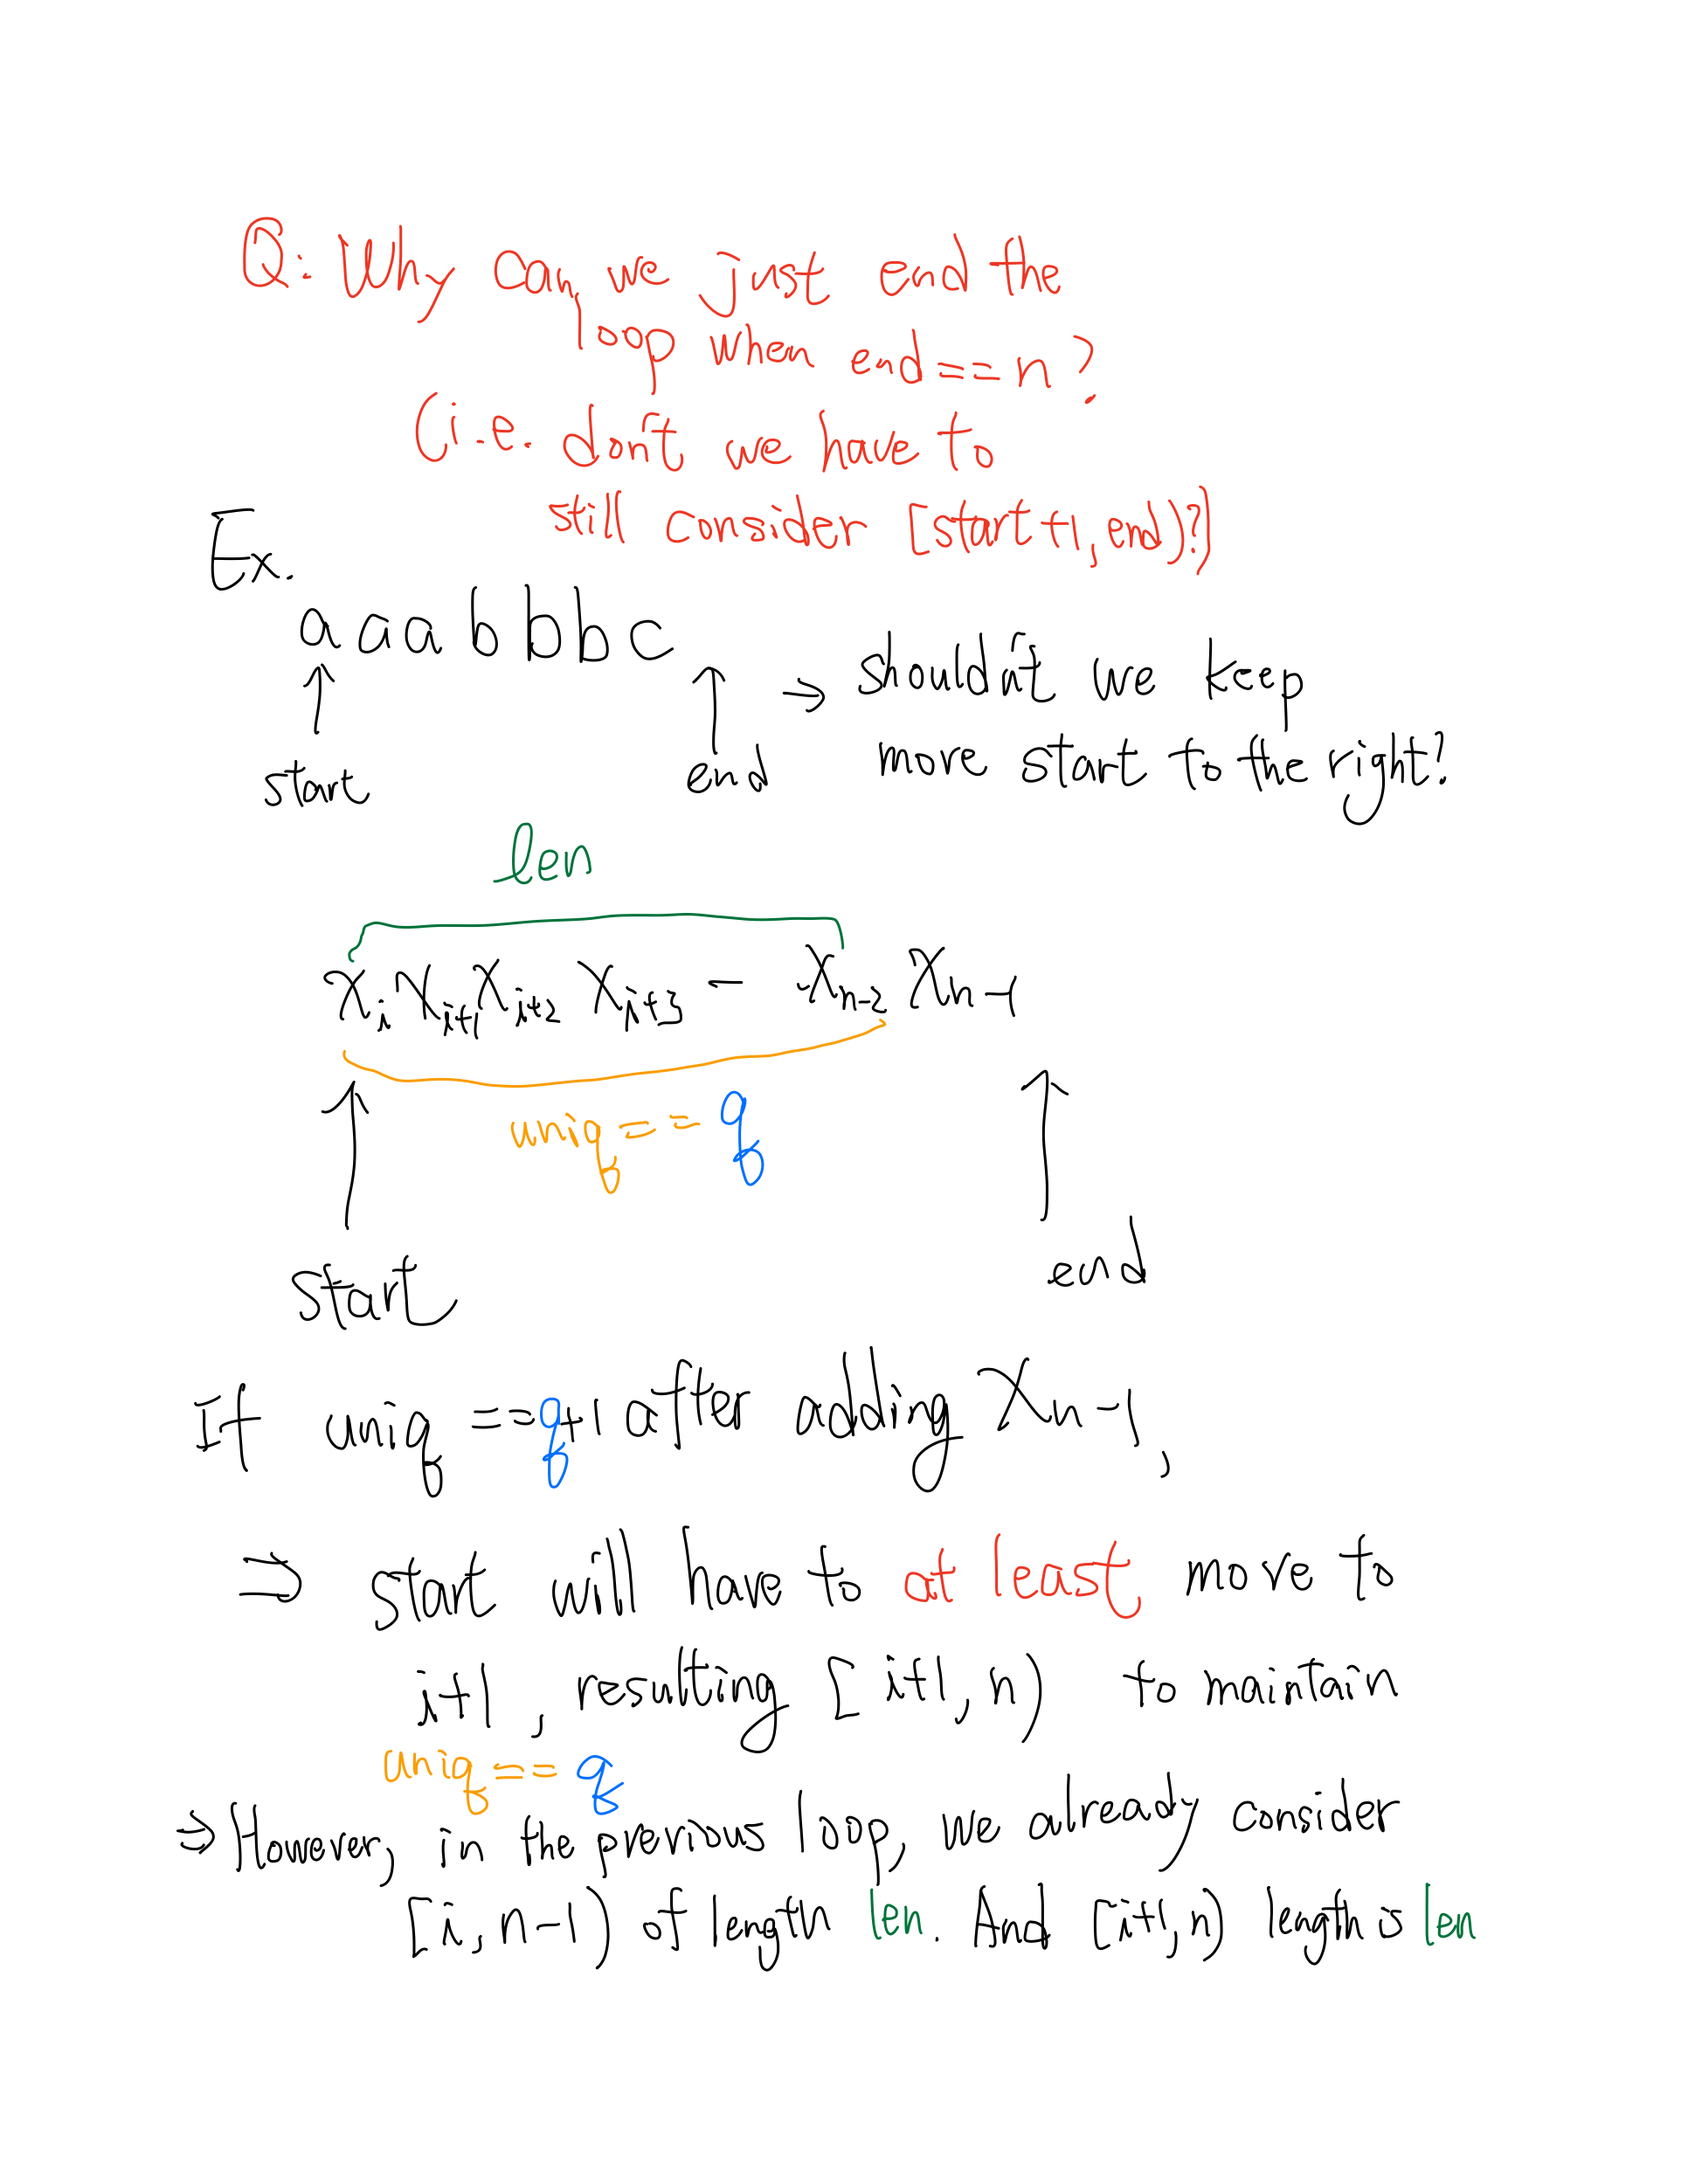 Q: Why can we just end the
loop when end==n?
(i.e. don't we have to
still consider [start+1, end)?)
Ex.
aaabbbc
start
end
→ shouldn't we keep
move start to the right?
len
x_i x_{i+1} x_{i+2} x_{i+3} - x_{n-2} x_{n-1}
uniq == q
start
end
If uniq == q+1 after adding x_{n-1},
⇒ start will have to at least move to
i+1, resulting [i+1, n) to maintain
uniq == q
⇒ However, in the previous loop, we already consider
[i, n-1) of length len. And [i+1, n) length is len